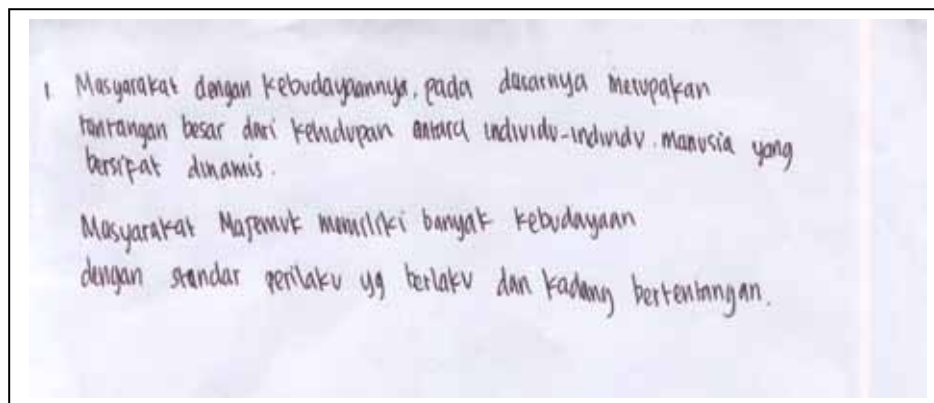 1 Masyarakat dengan kebudayaannya, pada dasarnya merupakan
tantangan besar dari kehidupan antara individu-individu manusia yang
bersifat dinamis.
Masyarakat Majemuk memiliki banyak kebudayaan
dengan standar perilaku yg berlaku dan kadang bertentangan.